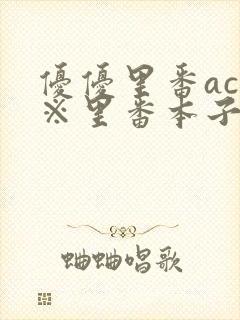 優優里番ac
※里番本子
蛐蛐唱歌